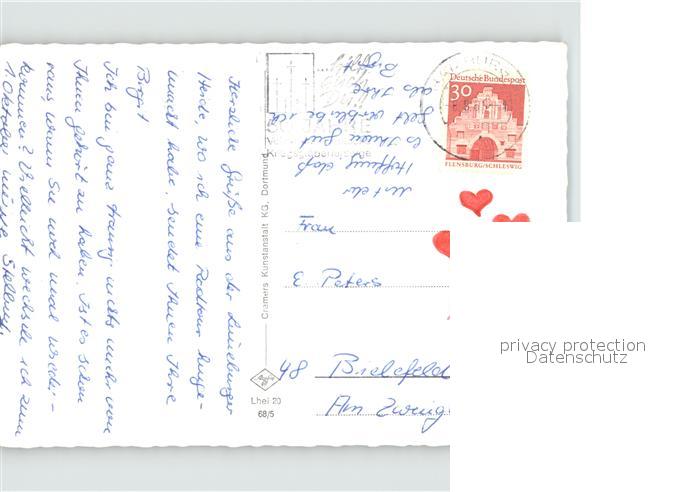 Herzliche Grüße aus der Lüneburger
Heide, wo ich eine Radtour hinge-
macht habe, sendet Ihnen Ihre
Birgit
Ich bin ganz traurig nichts mehr von
Ihnen gehört zu haben. Ist es schon
raus wann Sie noch mal wieder-
kommen? Vielleicht wechsle ich zum
1. Oktober meine Stellung.
Mit der
Hoffnung daß
es Ihnen gut
geht verbleibe ich
als Ihre
Birgit
Kriegsgräberfürsorge
Deutsche Bundespost
30
FLENSBURG/SCHLESWIG
Frau
E. Peters
48 Bielefeld
Am Zwing
Cramers Kunstanstalt KG, Dortmund
Lhei 20
68/5
privacy protection
Datenschutz